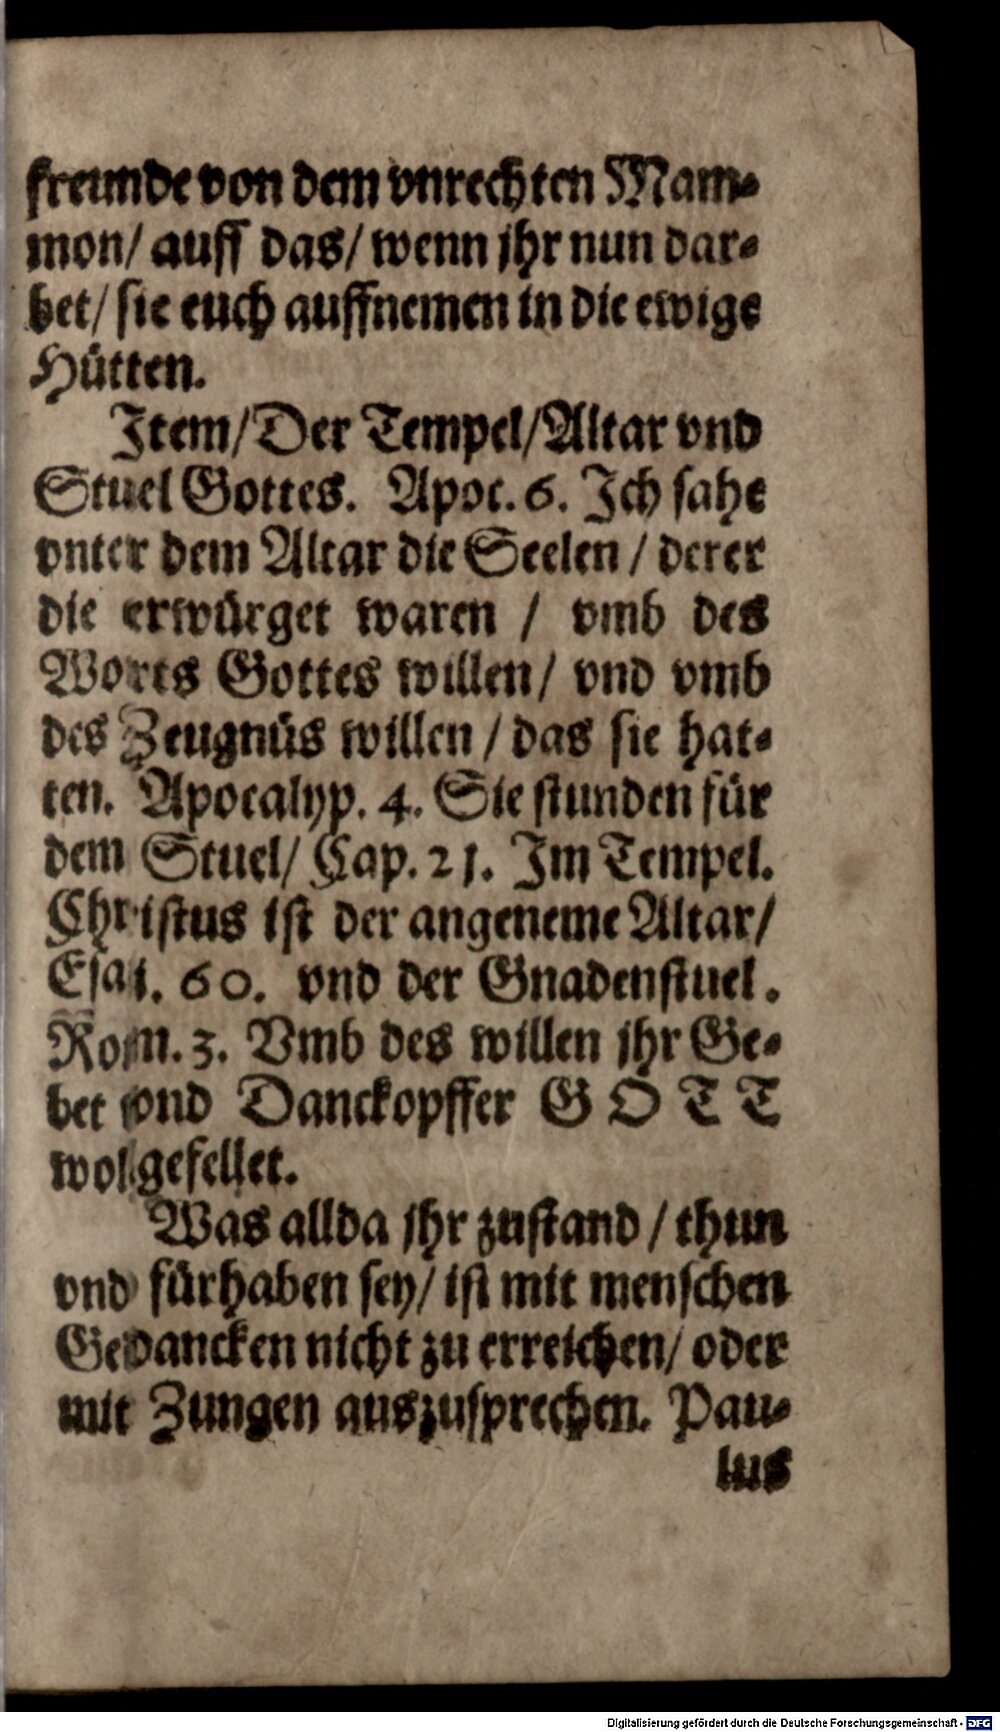 freunde von dem vnrechten Mam-
mon/ auff das/ wenn jhr nun dar-
bet/ sie euch auffnemen in die ewige
Hütten.
Item/ Der Tempel/ Altar vnd
Stuel Gottes. Apoc. 6. Ich sahe
vnter dem Altar die Seelen / derer
die erwürget waren / vmb des
Worts Gottes willen/ vnd vmb
des Zeugnüs willen / das sie hat-
ten. Apocalyp. 4. Sie stunden für
dem Stuel/ Cap. 21. Im Tempel.
Christus ist der angeneme Altar/
Esai. 60. vnd der Gnadenstuel.
Rom. 3. Vmb des willen jhr Ge-
bet vnd Danckopffer GOTT
wolgefellet.
Was allda jhr zustand / thun
vnd fürhaben sey/ ist mit menschen
Gedancken nicht zu erreichen/ oder
mit Zungen auszusprechen. Pau-
lus
Digitalisierung gefördert durch die Deutsche Forschungsgemeinschaft - DFG